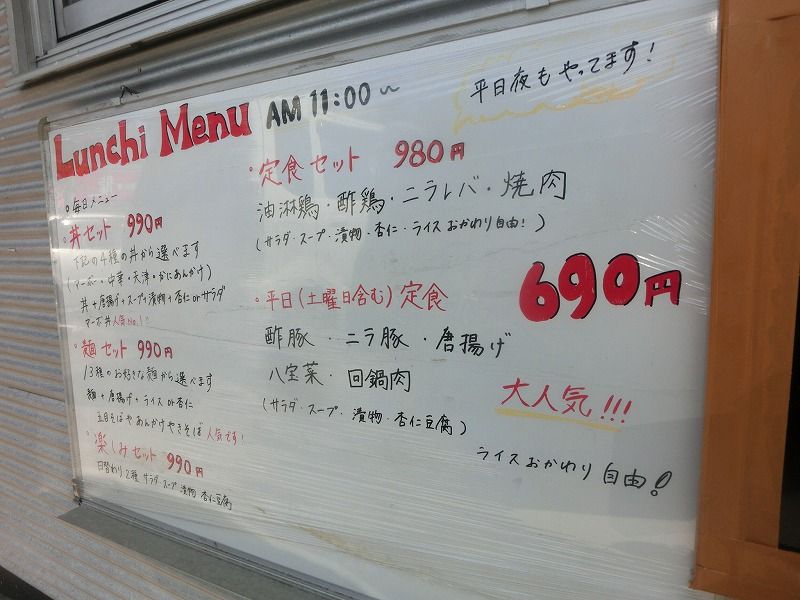 Lunchi Menu AM 11:00～
平日夜もやってます！
。毎日メニュー
・丼セット 990円
下記の4種の丼から選べます
(マーボー・中華・天津・かにあんかけ)
丼+唐揚げ+スープ+漬物+杏仁orサラダ
マーボ丼人気No.1
・麺セット 990円
13種のお好きな麺から選べます
麺+唐揚げ+ライスor杏仁
五目そばやあんかけやきそば人気です！
・楽しみセット 990円
日替わり2種 サラダ・スープ 漬物 杏仁豆腐
・定食セット 980円
油淋鶏・酢鶏・ニラレバ・焼肉
(サラダ・スープ・漬物・杏仁・ライスおかわり自由！)
・平日(土曜日含む)定食 690円
酢豚・ニラ豚・唐揚げ
八宝菜・回鍋肉
(サラダ・スープ・漬物・杏仁豆腐)
大人気!!!
ライスおかわり自由！